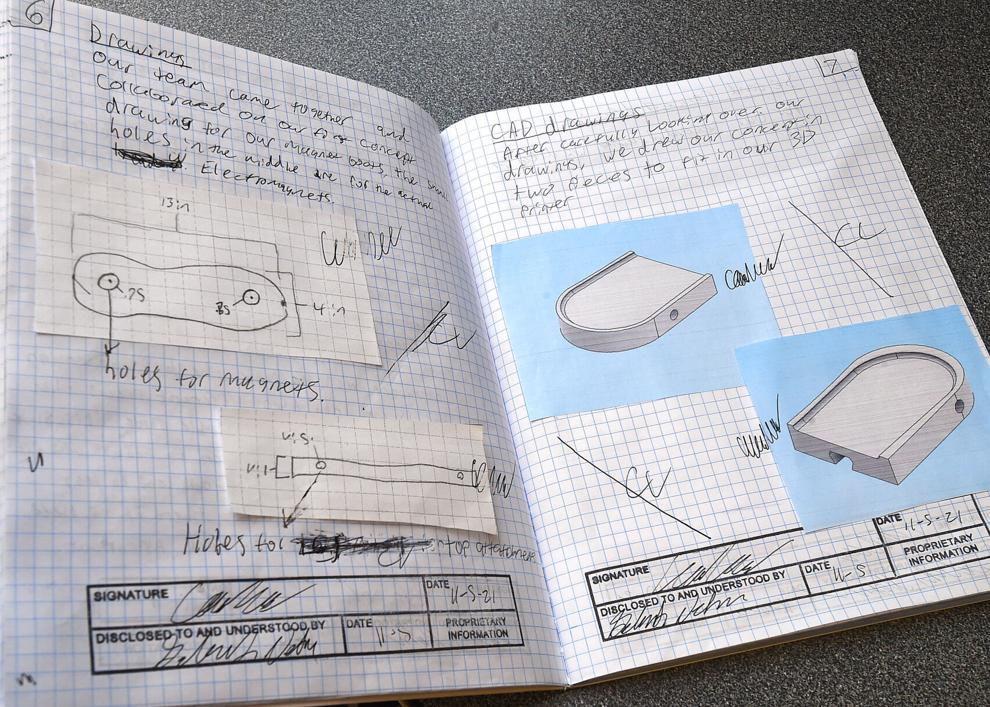 6
Drawings
Our team came together and
Collaborated on our first concept
drawing for our magnet boots, the small
holes in the middle are for the actual
Electromagnets.
13in
.75
.75
4in
holes for magnets.
Holes for top attachment
SIGNATURE
DATE 11-5-21
DISCLOSED TO AND UNDERSTOOD BY
DATE 11-5
PROPRIETARY
INFORMATION
7
CAD drawings
After carefully looking over our
drawings, we drew our concept in
two pieces to fit in our 3D
printer
SIGNATURE
DATE 11-5-21
DISCLOSED TO AND UNDERSTOOD BY
DATE 11-5
PROPRIETARY
INFORMATION